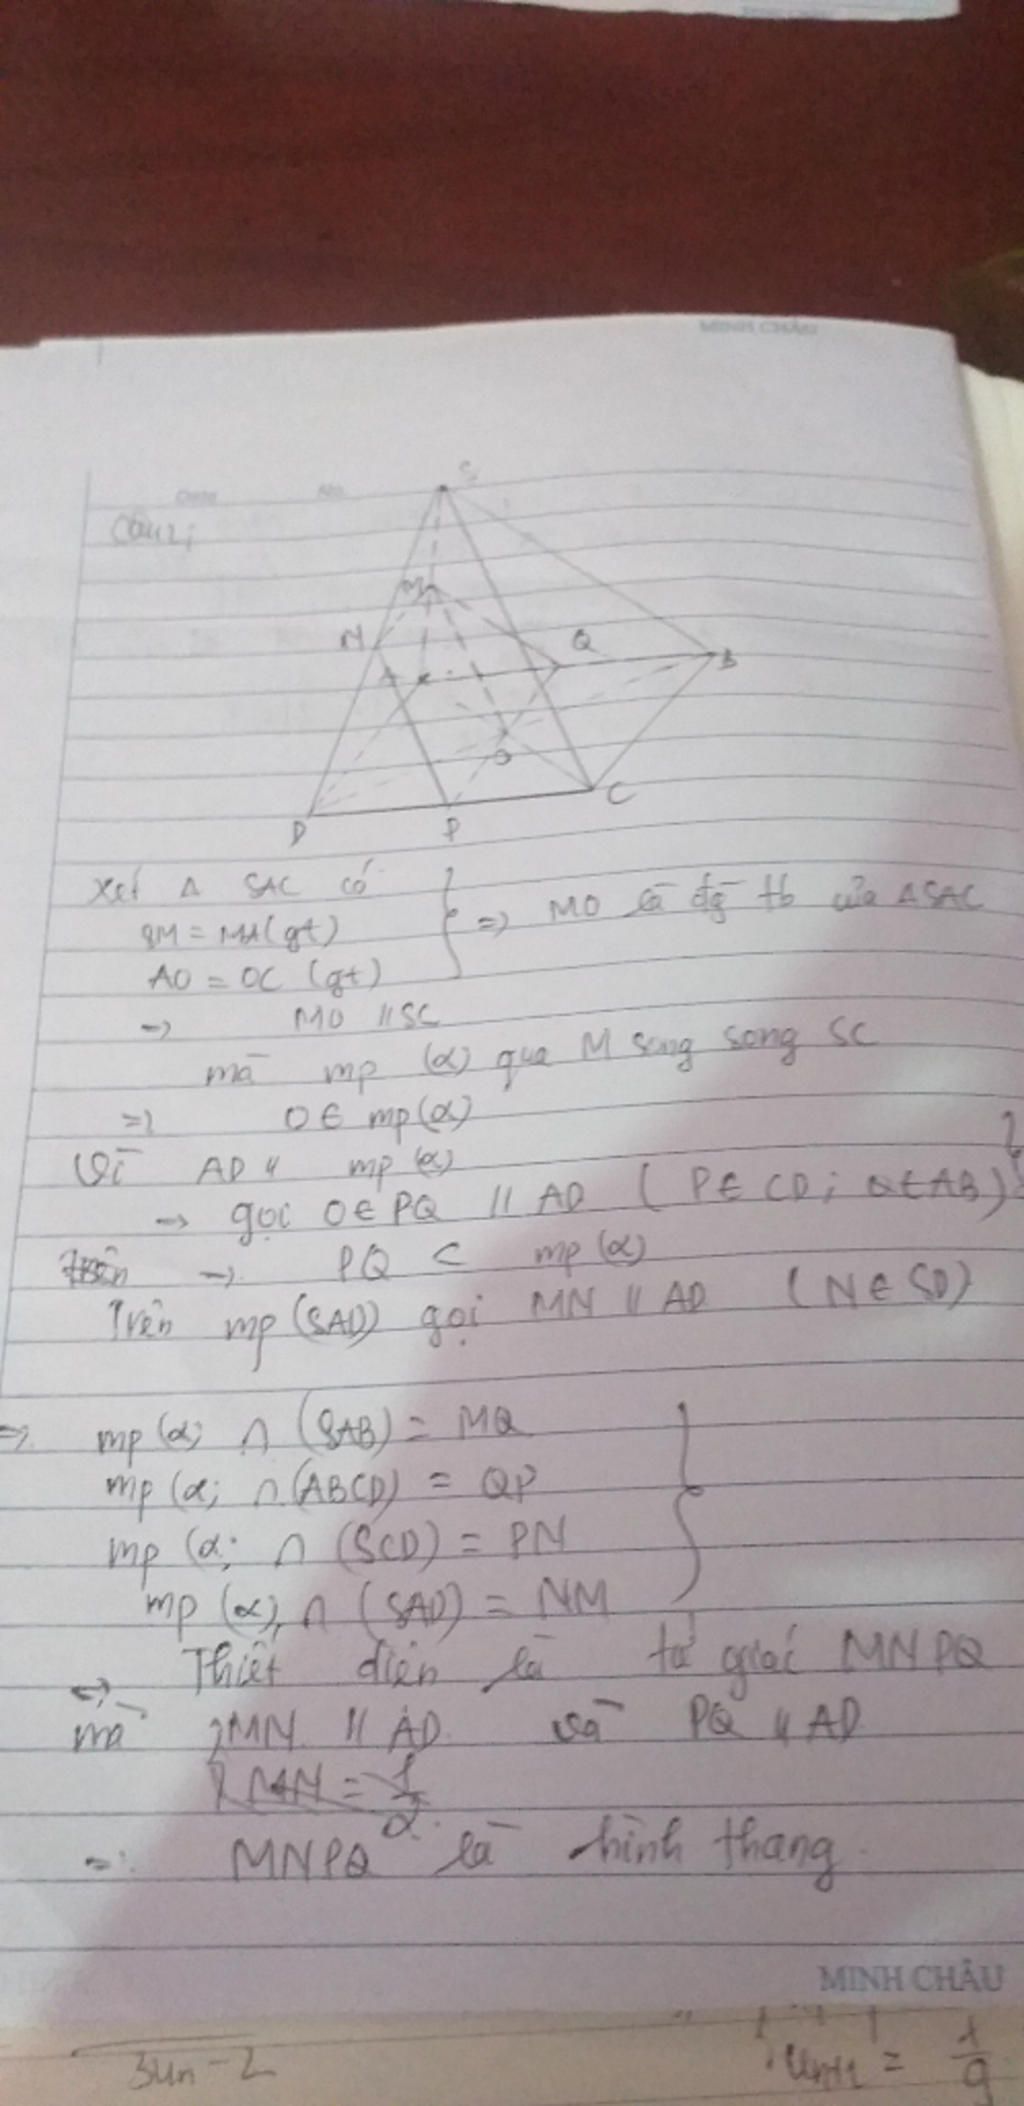 MINH CHÂU
Date No
Câu 2;
S
M
N
Q
A
B
O
C
D
P
Xét Δ SAC có
SM = MA (gt)
AO = OC (gt)
=> MO là đg tb của Δ SAC
=> MO // SC
mà mp (α) qua M song song SC
=> O ∈ mp (α)
Vì AD // mp (α)
=> gọi O ∈ PQ // AD ( P ∈ CD ; Q ∈ AB )
=> PQ ⊂ mp (α)
Trên mp (SAD) gọi MN // AD ( N ∈ SD )
=> mp (α) ∩ (SAB) = MQ
mp (α) ∩ (ABCD) = QP
mp (α) ∩ (SCD) = PN
mp (α) ∩ (SAD) = NM
=> Thiết diện là tứ giác MNPQ
mà MN // AD và PQ // AD
MN = 1/2
=> MNPQ là hình thang
MINH CHÂU
3Un - 2
Un+1 = 1/9